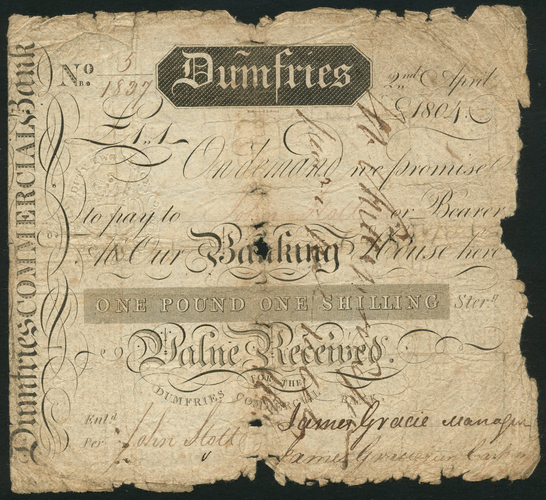 Dumfries COMMERCIAL Bank
No. 3
1837
Dumfries
2nd April
1804
£1,,1
On demand we promise
to pay to or Bearer
At Our Banking House here
ONE POUND ONE SHILLING Ster.g
Value Received.
FOR THE
DUMFRIES COMMERCIAL BANK
Ent.d
Per John Stott
James Gracie Manager
James Gracie